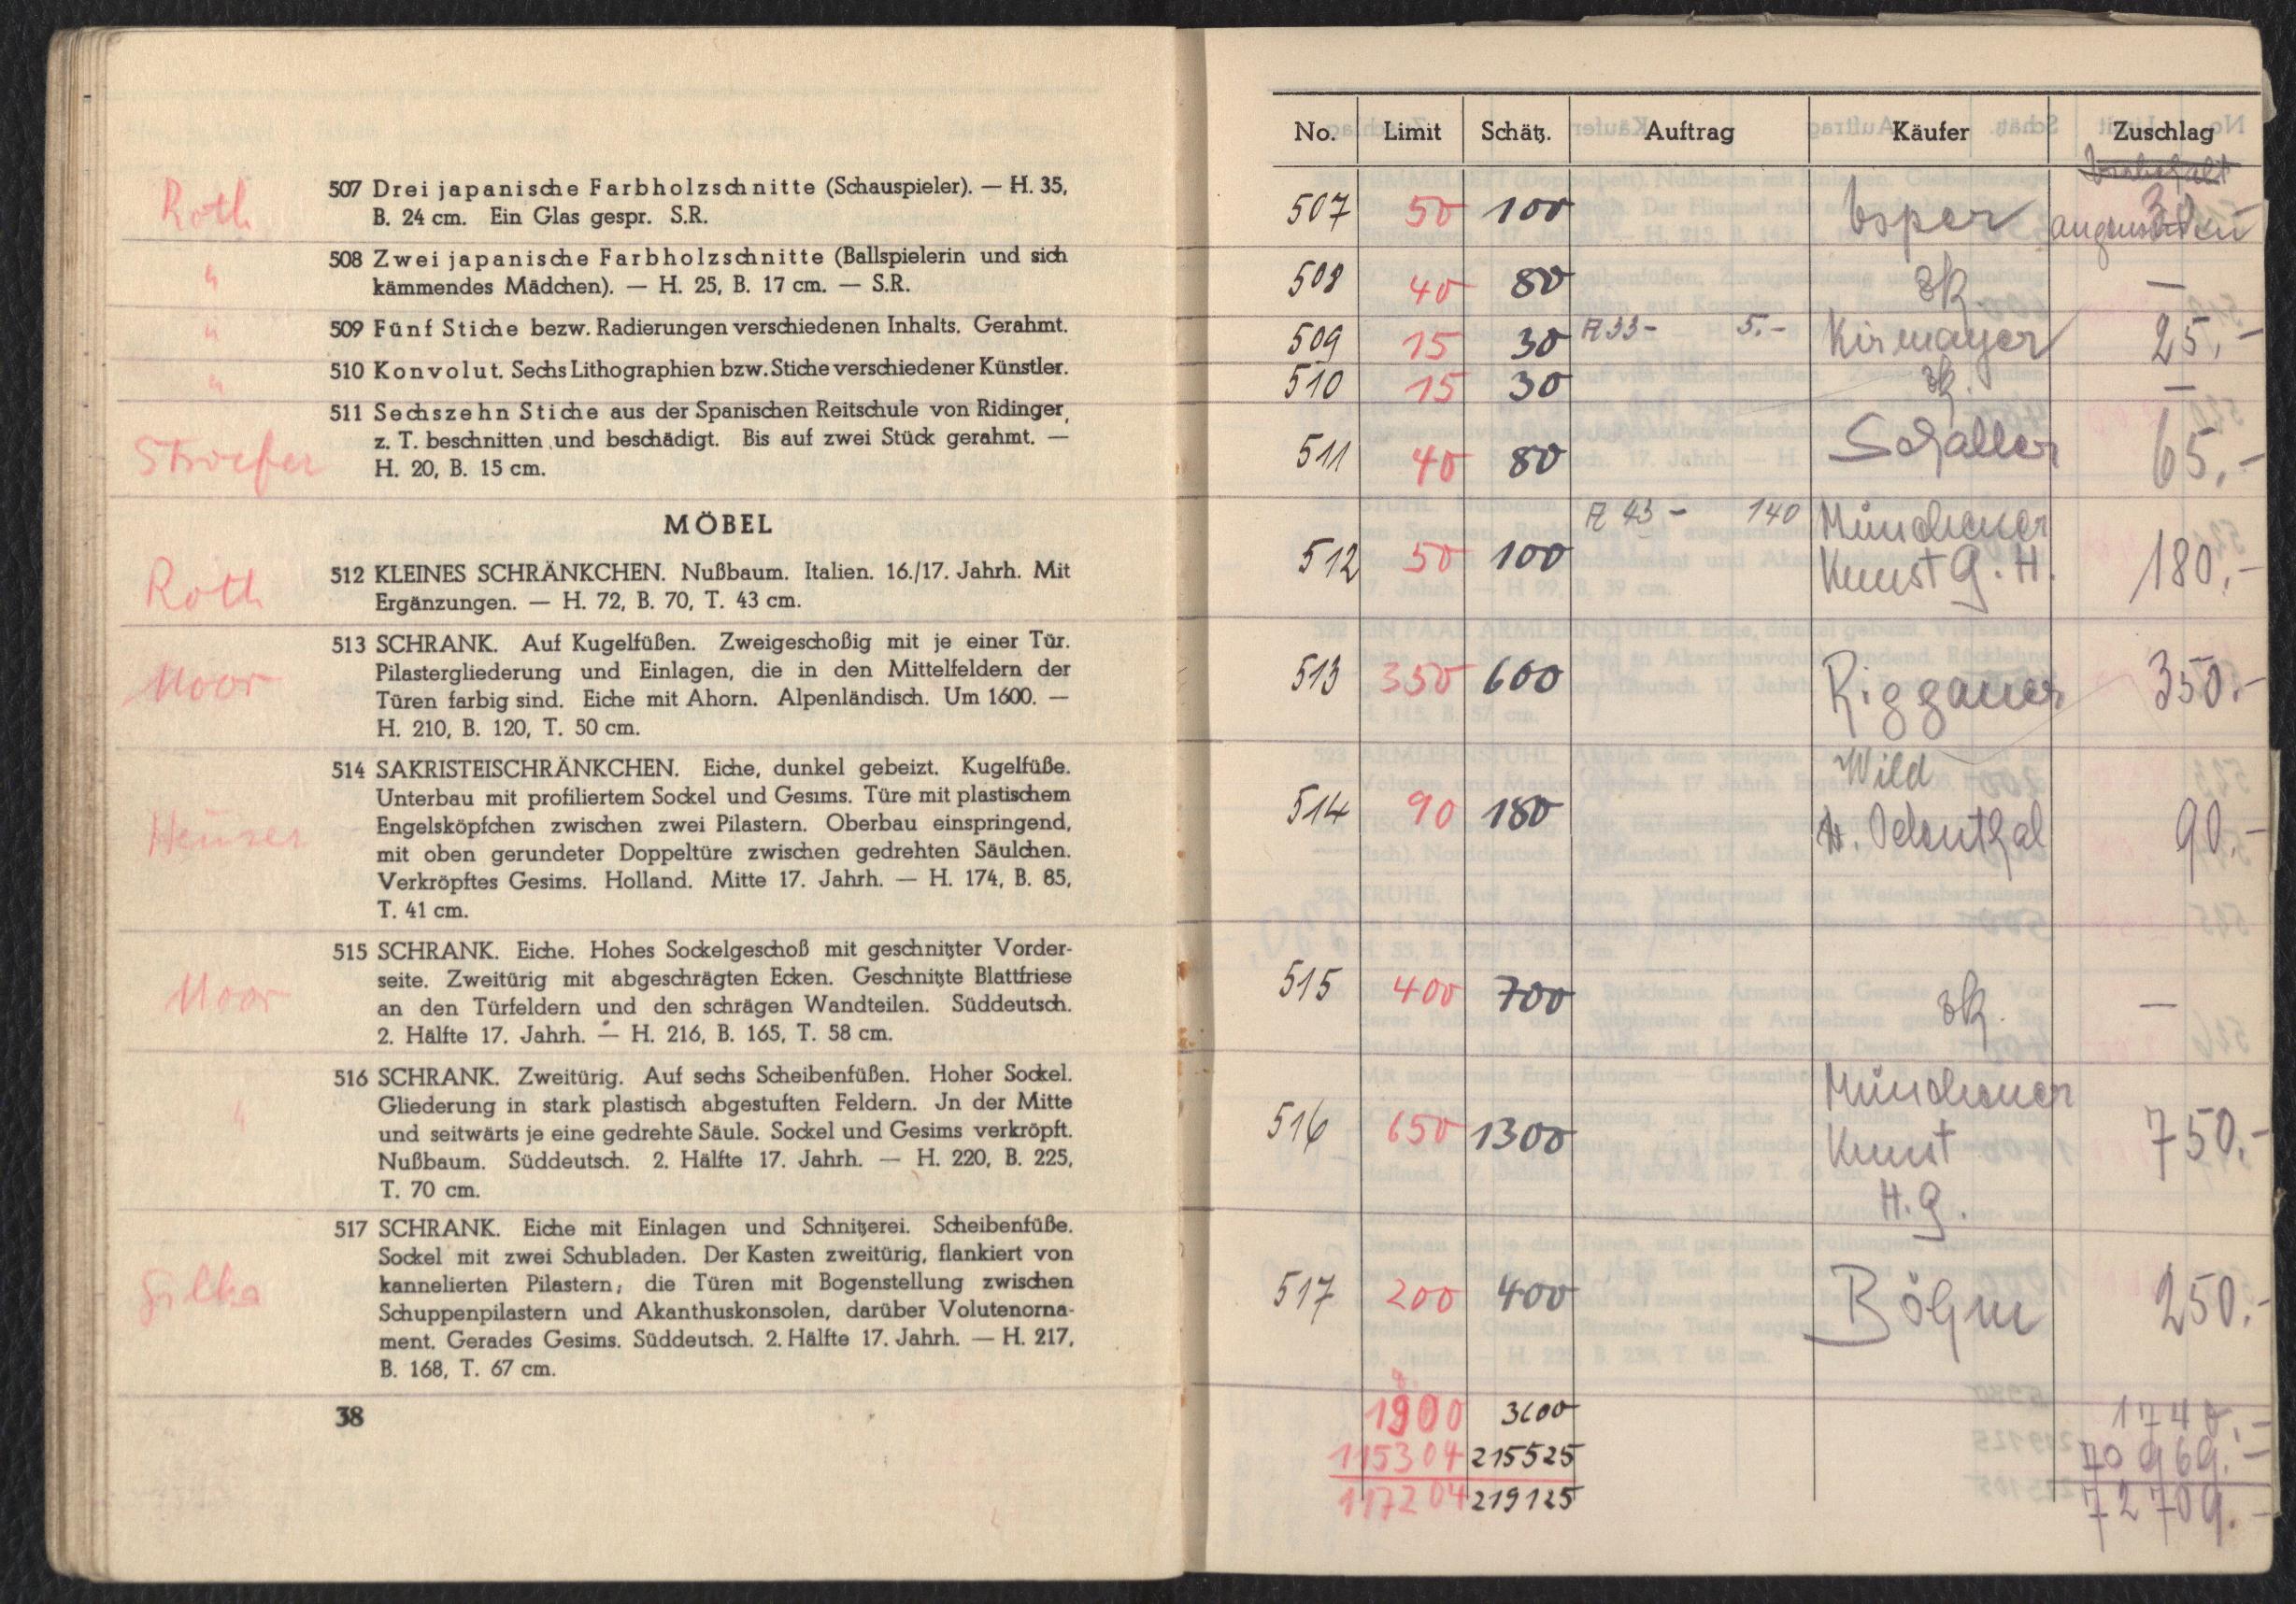 Roth
507 Drei japanische Farbholzschnitte (Schauspieler). — H. 35,
B. 24 cm. Ein Glas gespr. S.R.
"
508 Zwei japanische Farbholzschnitte (Ballspielerin und sich
kämmendes Mädchen). — H. 25, B. 17 cm. — S.R.
"
509 Fünf Stiche bezw. Radierungen verschiedenen Inhalts. Gerahmt.
"
510 Konvolut. Sechs Lithographien bzw. Stiche verschiedener Künstler.
Stroefer
511 Sechszehn Stiche aus der Spanischen Reitschule von Ridinger,
z. T. beschnitten und beschädigt. Bis auf zwei Stück gerahmt. —
H. 20, B. 15 cm.
MÖBEL
Roth
512 KLEINES SCHRÄNKCHEN. Nußbaum. Italien. 16./17. Jahrh. Mit
Ergänzungen. — H. 72, B. 70, T. 43 cm.
Moor
513 SCHRANK. Auf Kugelfüßen. Zweigeschoßig mit je einer Tür.
Pilastergliederung und Einlagen, die in den Mittelfeldern der
Türen farbig sind. Eiche mit Ahorn. Alpenländisch. Um 1600. —
H. 210, B. 120, T. 50 cm.
Heuser
514 SAKRISTEISCHRÄNKCHEN. Eiche, dunkel gebeizt. Kugelfüße.
Unterbau mit profiliertem Sockel und Gesims. Türe mit plastischem
Engelsköpfchen zwischen zwei Pilastern. Oberbau einspringend,
mit oben gerundeter Doppeltüre zwischen gedrehten Säulchen.
Verkröpftes Gesims. Holland. Mitte 17. Jahrh. — H. 174, B. 85,
T. 41 cm.
Moor
515 SCHRANK. Eiche. Hohes Sockelgeschoß mit geschnitzter Vorder-
seite. Zweitürig mit abgeschrägten Ecken. Geschnitzte Blattfriese
an den Türfeldern und den schrägen Wandteilen. Süddeutsch.
2. Hälfte 17. Jahrh. — H. 216, B. 165, T. 58 cm.
"
516 SCHRANK. Zweitürig. Auf sechs Scheibenfüßen. Hoher Sockel.
Gliederung in stark plastisch abgestuften Feldern. Jn der Mitte
und seitwärts je eine gedrehte Säule. Sockel und Gesims verkröpft.
Nußbaum. Süddeutsch. 2. Hälfte 17. Jahrh. — H. 220, B. 225,
T. 70 cm.
Gilka
517 SCHRANK. Eiche mit Einlagen und Schnitzerei. Scheibenfüße.
Sockel mit zwei Schubladen. Der Kasten zweitürig, flankiert von
kannelierten Pilastern; die Türen mit Bogenstellung zwischen
Schuppenpilastern und Akanthuskonsolen, darüber Volutenorna-
ment. Gerades Gesims. Süddeutsch. 2. Hälfte 17. Jahrh. — H. 217,
B. 168, T. 67 cm.
38
No. Limit Schätz. Auftrag Käufer Zuschlag
507 50 100 Esper 30
508 40 80 zk. —
509 15 30 A 33- 5.- Kirmayer 25.-
510 15 30 zk. —
511 40 80 Schaller 65.-
512 50 100 A 43 - 140 Münchener
Kunst G. H. 180.-
513 350 600 Riggauer 350.-
Wild
514 90 180 H. Odenthal 90.-
515 400 700 zk. —
516 650 1300 Münchener
Kunst 750.-
H. G.
517 200 400 Böhm 250.-
1900 3600 1740.-
115304 215525 70969.-
117204 219125 72709.-